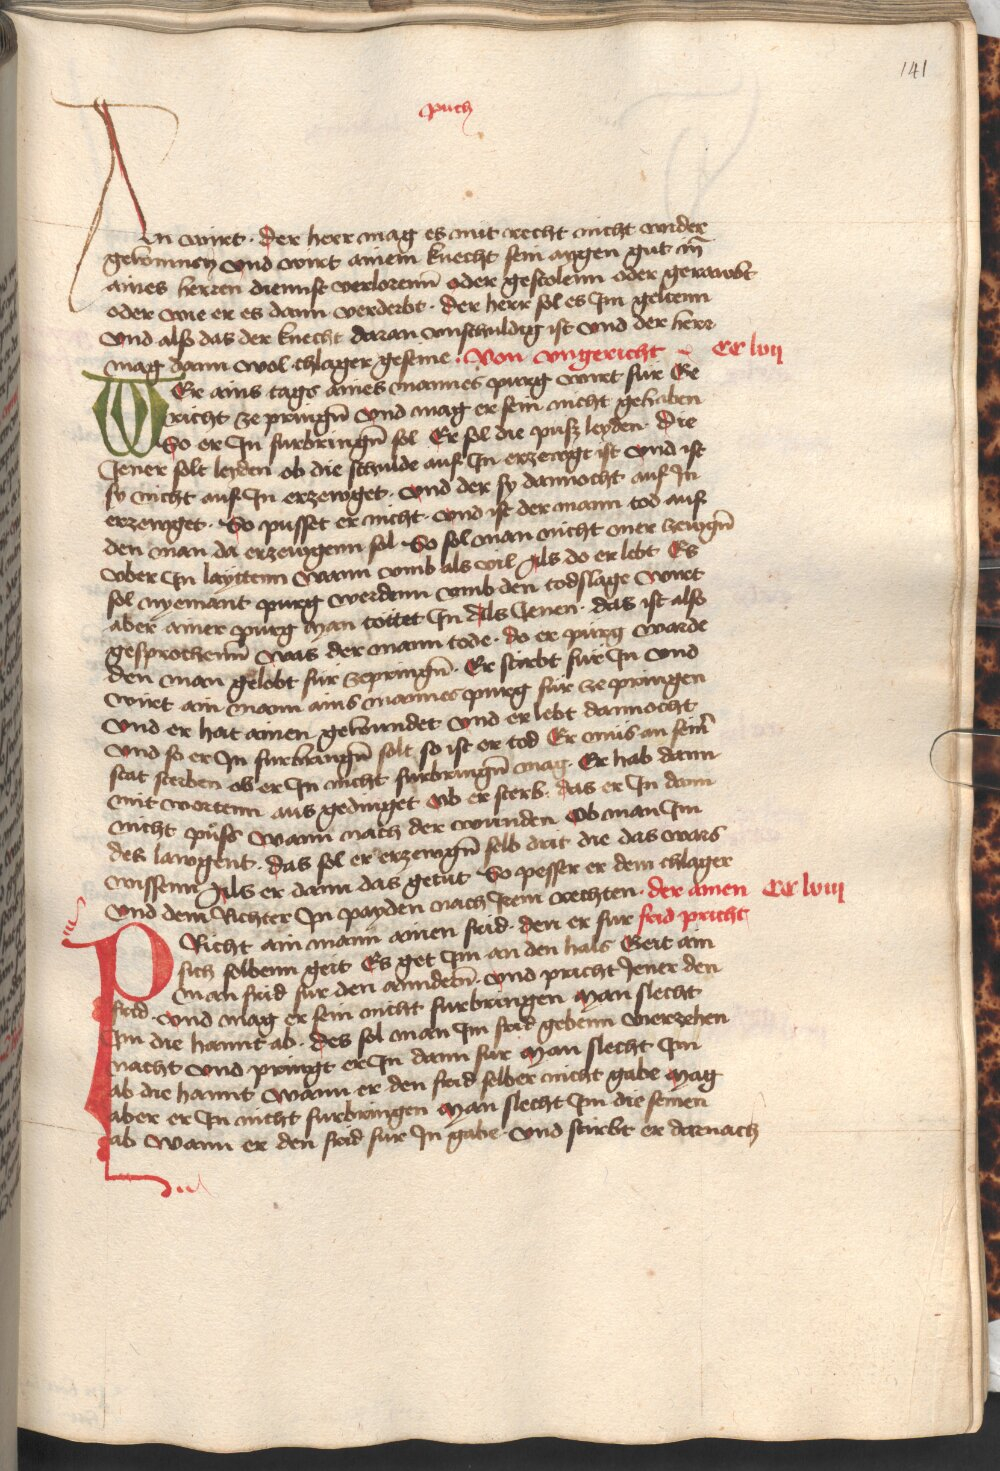 141
puch
An wirt · der herr mag es mit recht nicht wider
gekommen Vnd wirt ainem knecht sein aygen gut in̄
aines herren diennst verlorenn̄ oder gestolenn oder geraubt
oder wie er es dann verderbt · der herr sol es Im geltenn
Vnd also das der knecht daran vnschuldig ist Vnd der herr
mag dann wol chlager gesenne · Von vngericht CC lvii
WEr ains tags aines mannes purg wirt fur Ge
richt ze pringn̄ Vnd mag er sein nicht gehaben
So er In furbringn̄ sol Er sol die pusz leyden · Die
Jener solt leyden ob die schulde auf In erzewgt ist Vnd ist
sy nicht auf In erzewget · Vnd der sy dannocht auf In
erzewget · So pusset er nicht Vnd ist der mann tod auf
den man da erzewgenn sol So sol man nicht mer zewgn̄
vber In layttenn Wann vmb als vil Als do er lebt Es
sol nyemant purg werdenn vmb den todslage Wirt
aber ainer purg Man tottet In Als Jenen · das ist also
gesprochenn̄ Was der mann tode · do er purg warde
den man gelobt fur zepringn̄ · Er stirbt fur In Vnd
wirt ain mann ains mannes purg fur ze pringen
Vnd er hat ainen gewundet Vnd er lebt dannocht
Vnd so er In furbringn̄ solt so ist er tod Er mus an sein̄
stat sterben ob er In nicht furbringn̄ mag · Er hab dann
mit wortenn aus gedinget Ob er sterb · das er In dann
nicht puss Wann nach der wunden Ob man Im
des lawgent · das sol er erzewgn̄ selb drit die das wars
wissenn Als er dann das getut So pesser er dem chlager
Vnd dem Richter In payden nach Irem rechten · der ainen CC lviii
frid pricht
PRicht ain mann ainen frid · den er fur
sich selbenn geit Es get Im an den hals Geit ain
man frid fur den anndern̄ · Vnd pricht Jener den
frid · Vnd mag er sein nicht furbringen Man slecht
Im die hannt ab · des sol man Im frid gebenn vierzehen
nacht Vnd pringt er In dann fur Man slecht Im
ab die hannt Wann er den frid selber nicht gabe Mag
aber er In nicht furbringen Man slecht Im die seinen
ab Wann er den frid fur In gabe · Vnd stirbt er darnach